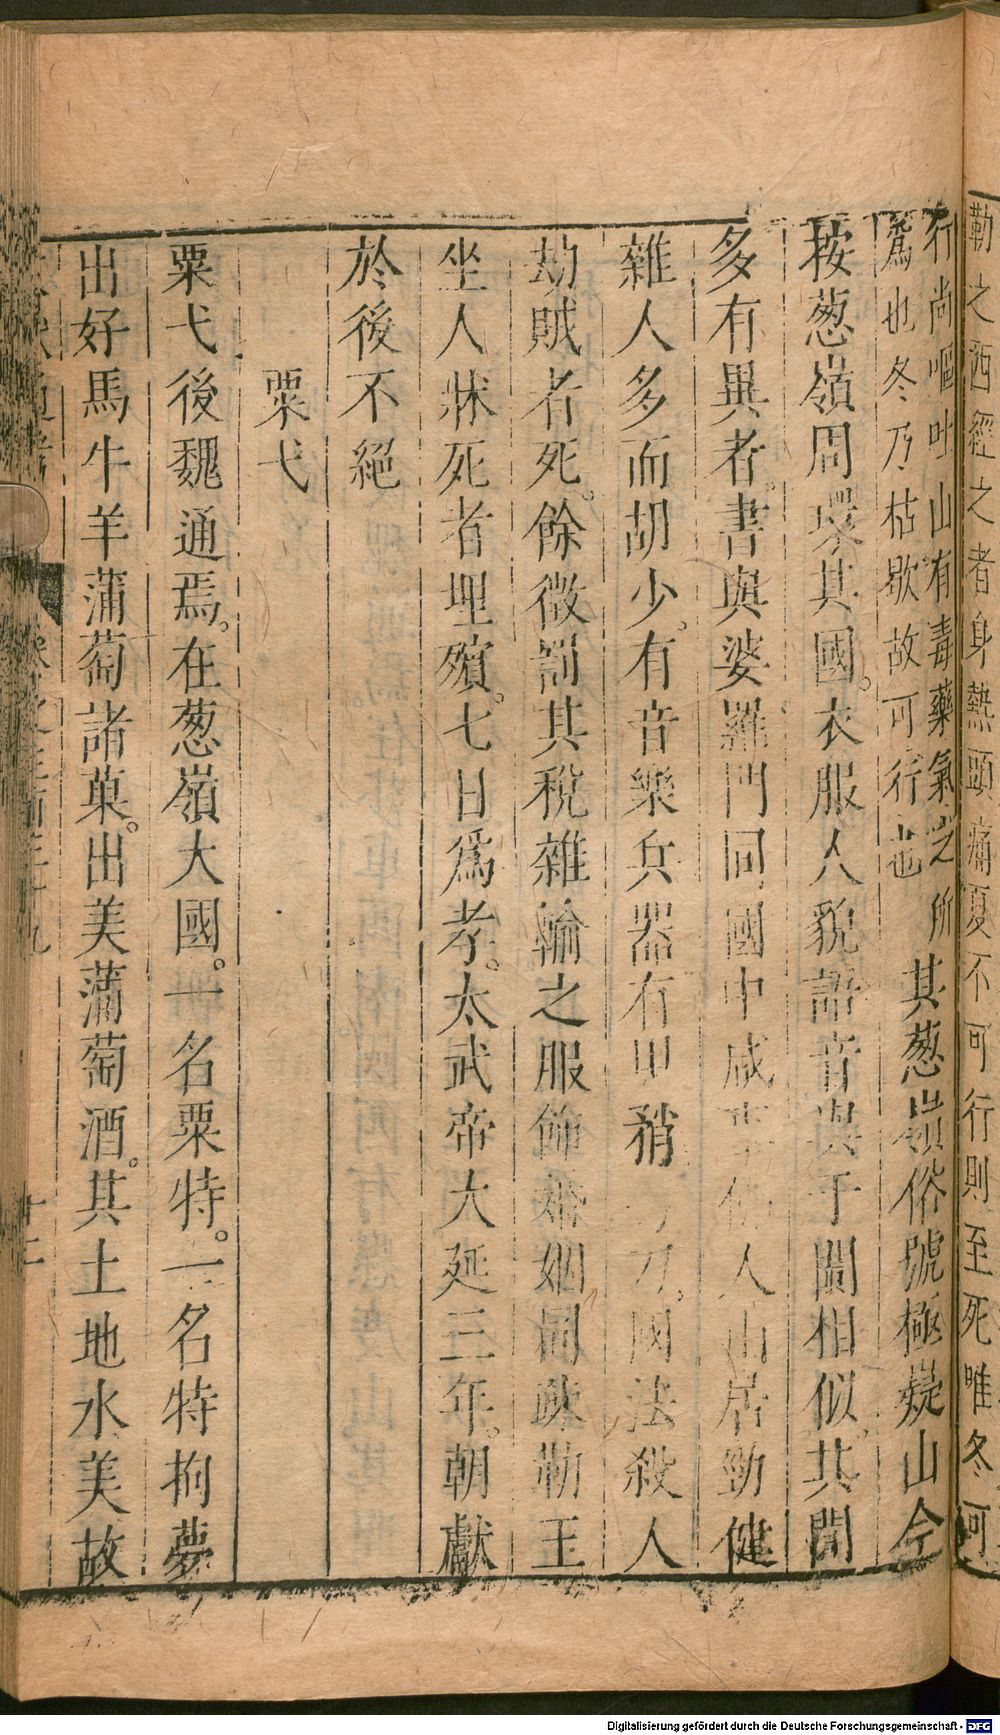 勒之西經之者身熱頭痛夏不可行則至死唯冬可
行尚嘔吐山有毒藥氣之所
爲也冬乃枯歇故可行也
其葱嶺俗號極嶷山今
按葱嶺周環其國。衣服人貌語音與于闐相似。其間
多有異者。書與婆羅門同國中咸事佛人山居勁健
雜人多而胡少。有音樂兵器有甲矟弓刀。國法殺人
劫賊者死。餘徵罰其稅雜輸之服飾婚姻同疎勒王
坐人牀死者埋殯。七日爲孝。太武帝大延三年。朝獻
於後不絕
粟弋
粟弋後魏通焉。在葱嶺大國。一名粟特。一名特拘夢
出好馬牛羊蒲萄諸菓。出美蒲萄酒。其土地水美故
十二
Digitalisierung gefördert durch die Deutsche Forschungsgemeinschaft - DFG